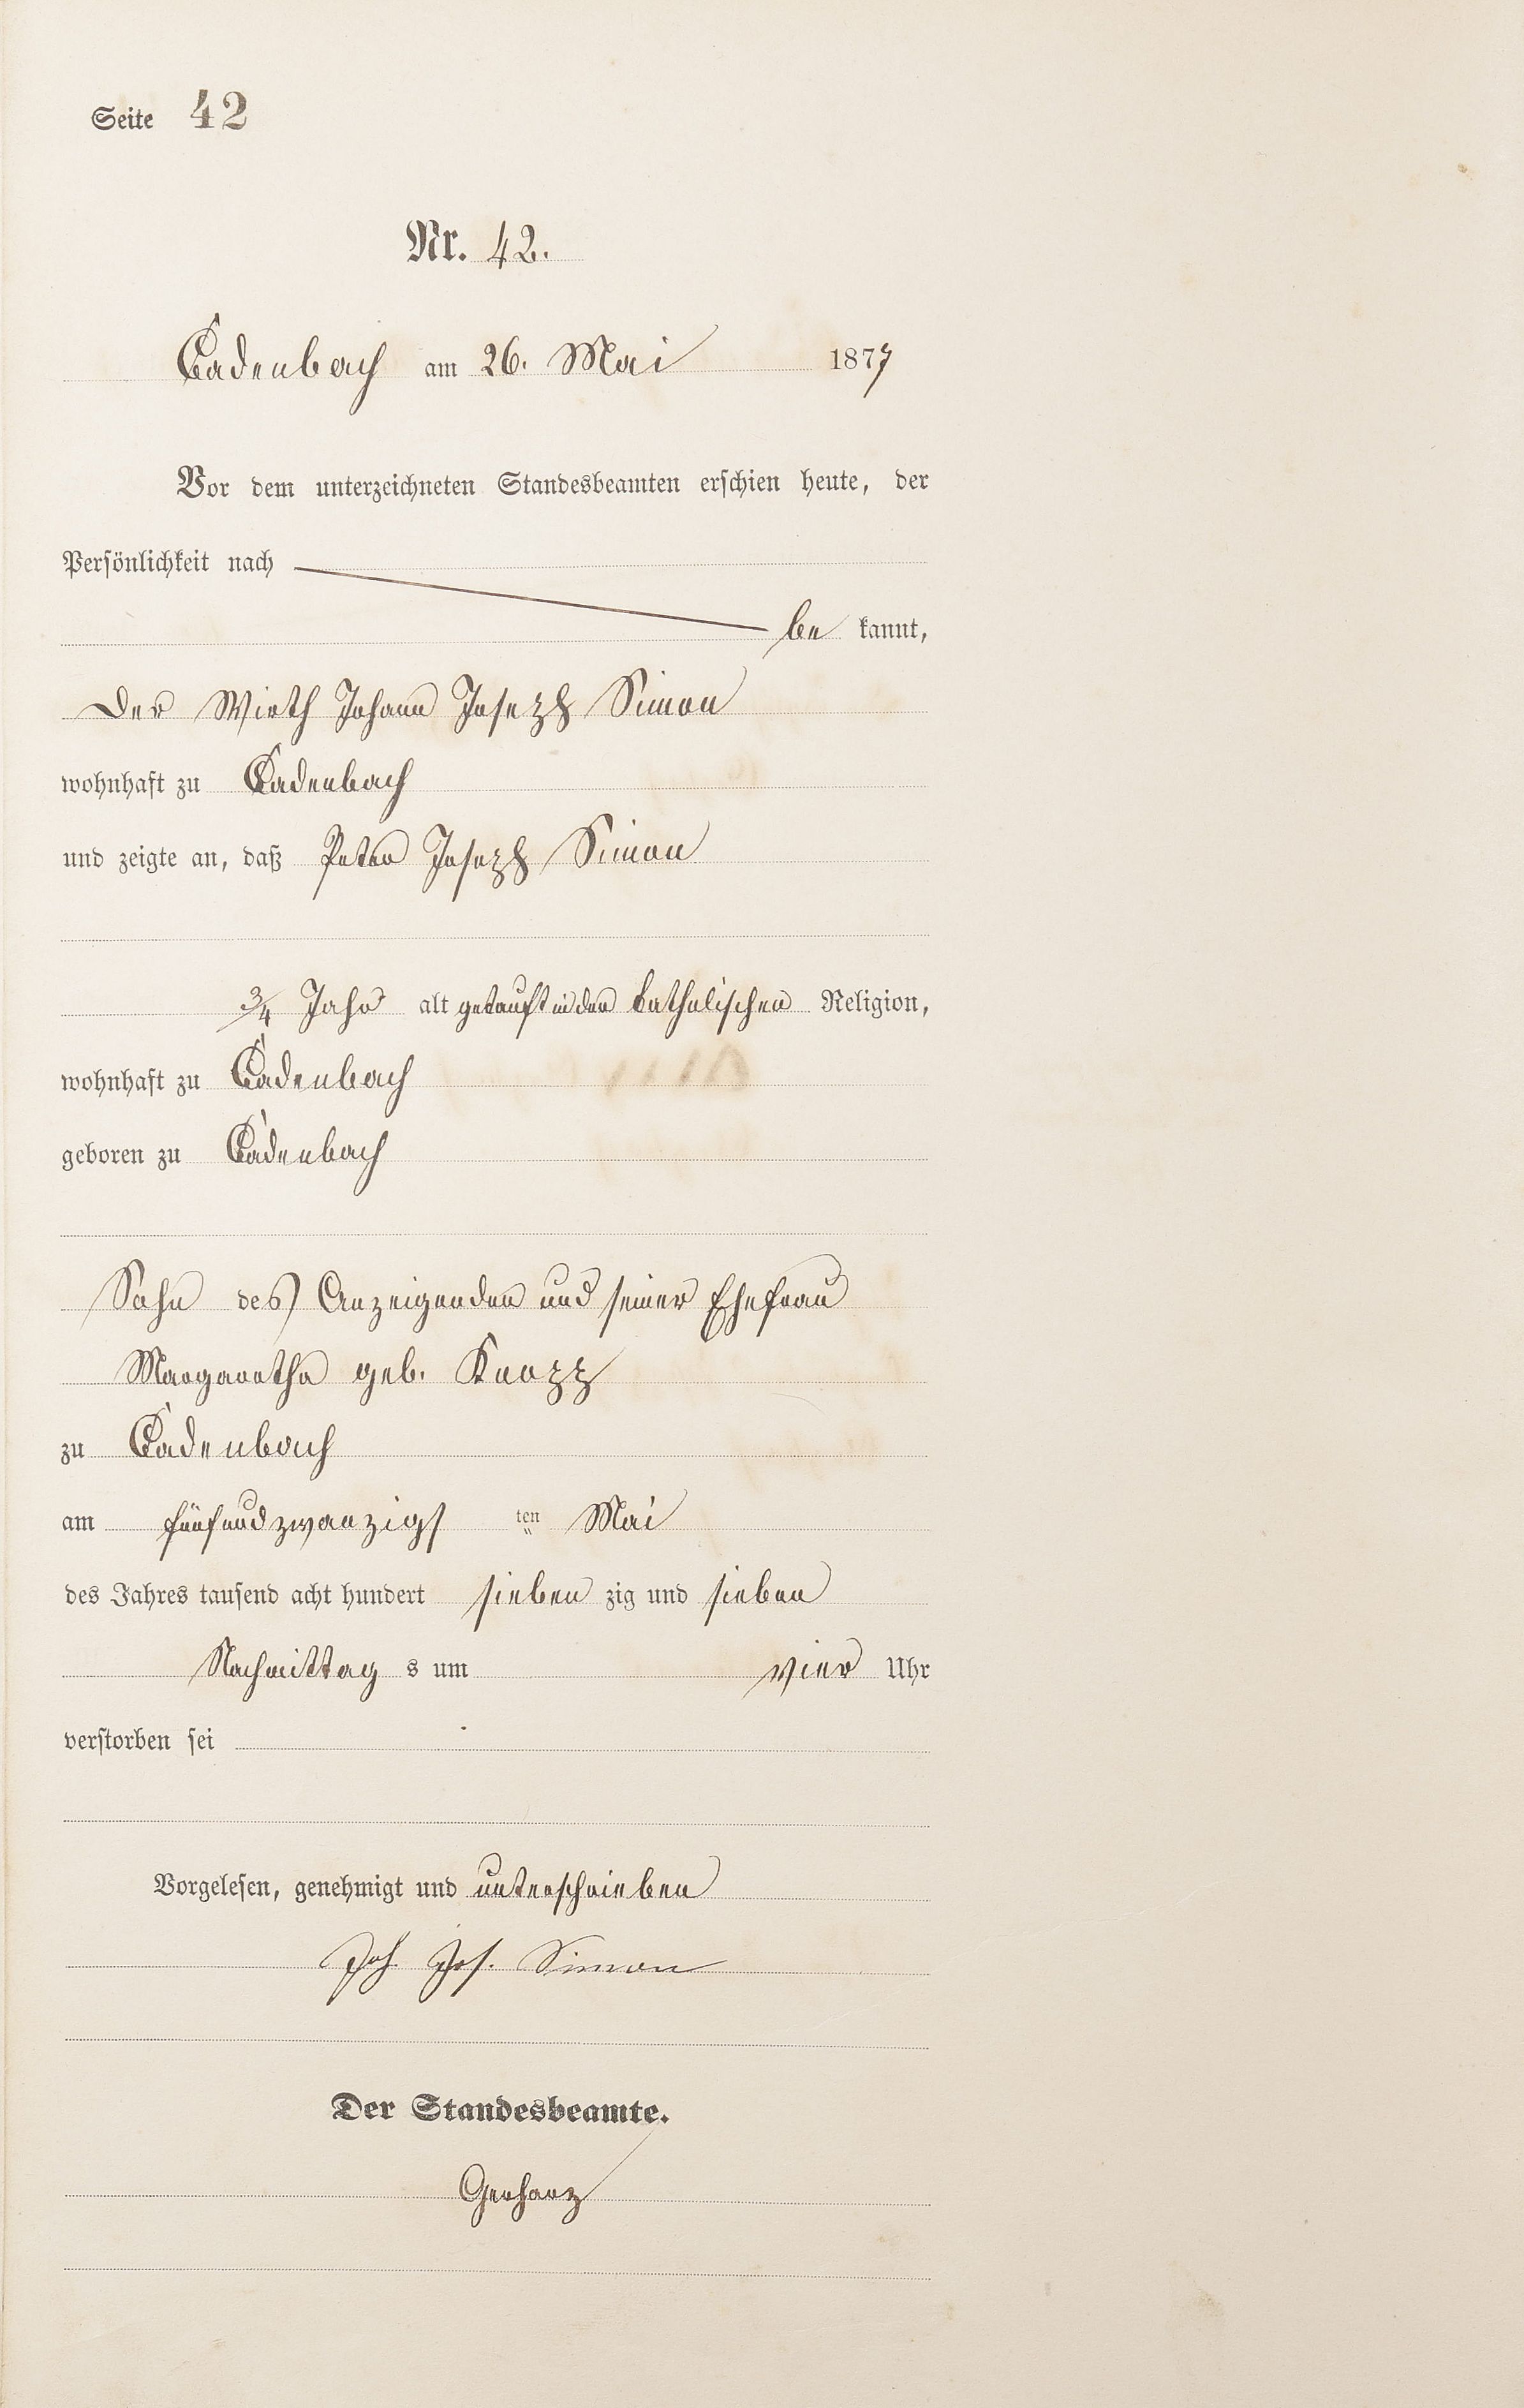 Seite 42
Nr. 42.
Cadenbach am 26. Mai 1877
Vor dem unterzeichneten Standesbeamten erschien heute, der
Persönlichkeit nach
be kannt,
Der Wirth Johann Joseph Simon
wohnhaft zu Cadenbach
und zeigte an, daß Peter Joseph Simon
3/4 Jahr alt getauft in der katholischen Religion,
wohnhaft zu Cadenbach
geboren zu Cadenbach
Sohn des Anzeigenden und seiner Ehefrau
Margaretha geb. Knopp
zu Cadenbach
am fünfundzwanzigs ten Mai
des Jahres tausend acht hundert sieben zig und sieben
Nachmittag s um vier Uhr
verstorben sei
Vorgelesen, genehmigt und unterschrieben
Joh. Jos. Simon
Der Standesbeamte.
Gerharz